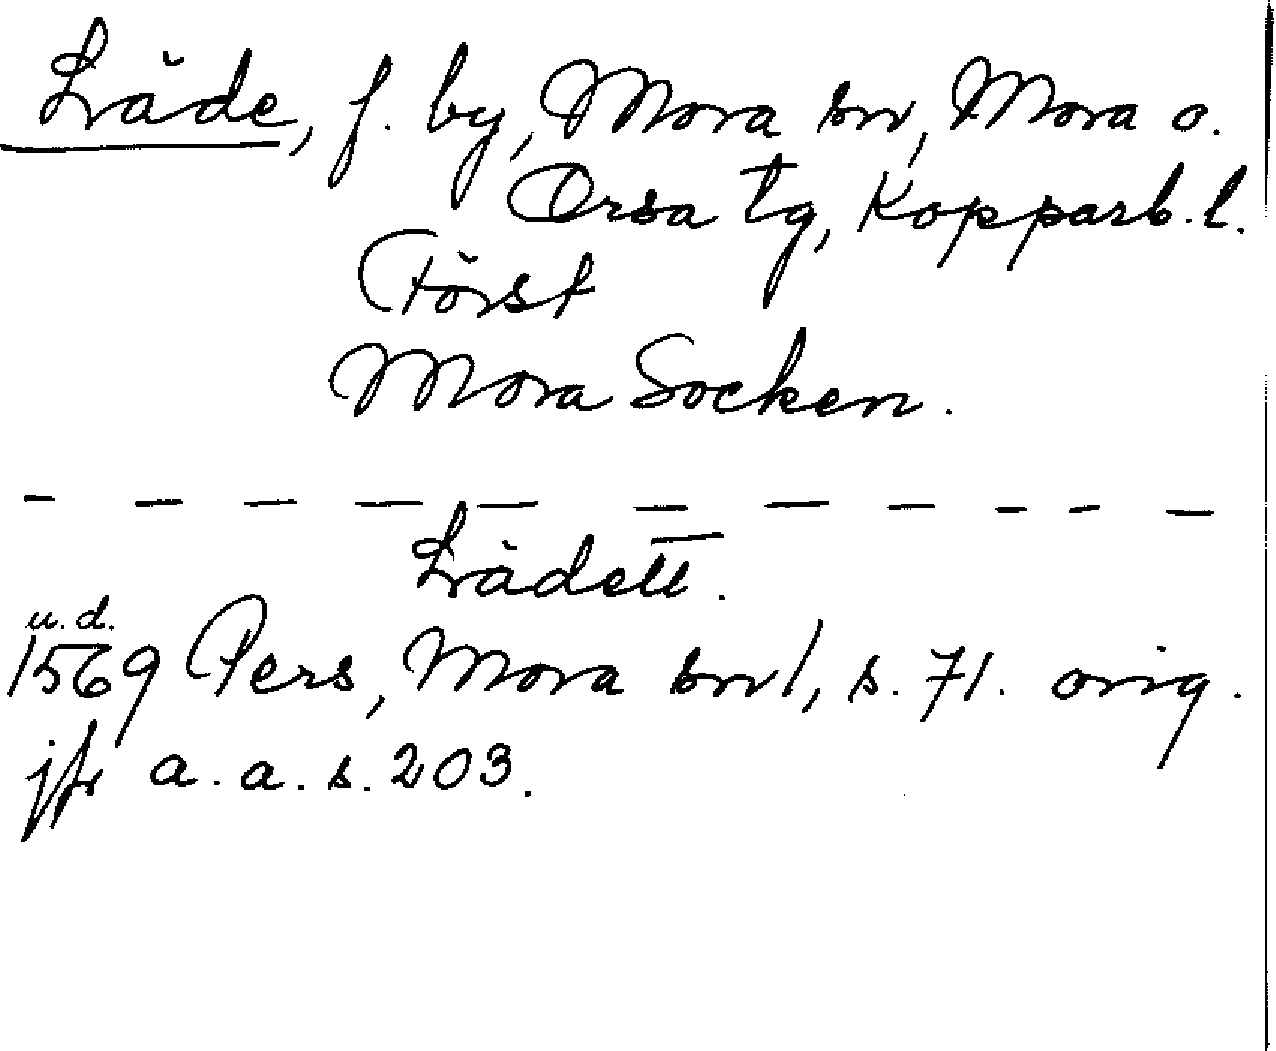 Låde, f. by, Mora sn, Mora o.
Orsa tg, Kopparb. l.
Först
Mora Socken.
Lådett.
u. d.
1569 Pers, Mora sn 1, s. 71. orig.
jfr a. a. s. 203.